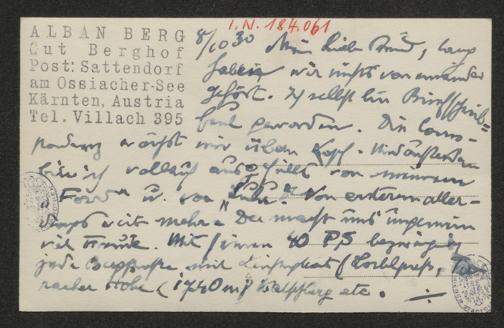 ALBAN BERG
Gut Berghof
Post: Sattendorf
am Ossiacher-See
Kärnten, Austria
Tel. Villach 395
I.N. 184.061
8/10 30 Mein lieber Freund, lang
haben wir nichts von einander
gehört. Ich selbst bin Briefschreib-
faul geworden. Die Corres-
pondenz wächst mir über'n Kopf. Und außerdem
bin ich vollauf ausgefüllt von meinem
"Ford" u. von "Lulu". Von ersterem aller-
dings weit mehr. Der macht uns ungemein
viel Freude. Mit seinen 40 PS bezwang er
jede
mit
(Loiblpass, Tur-
racher Höhe (1740 m)
etc.